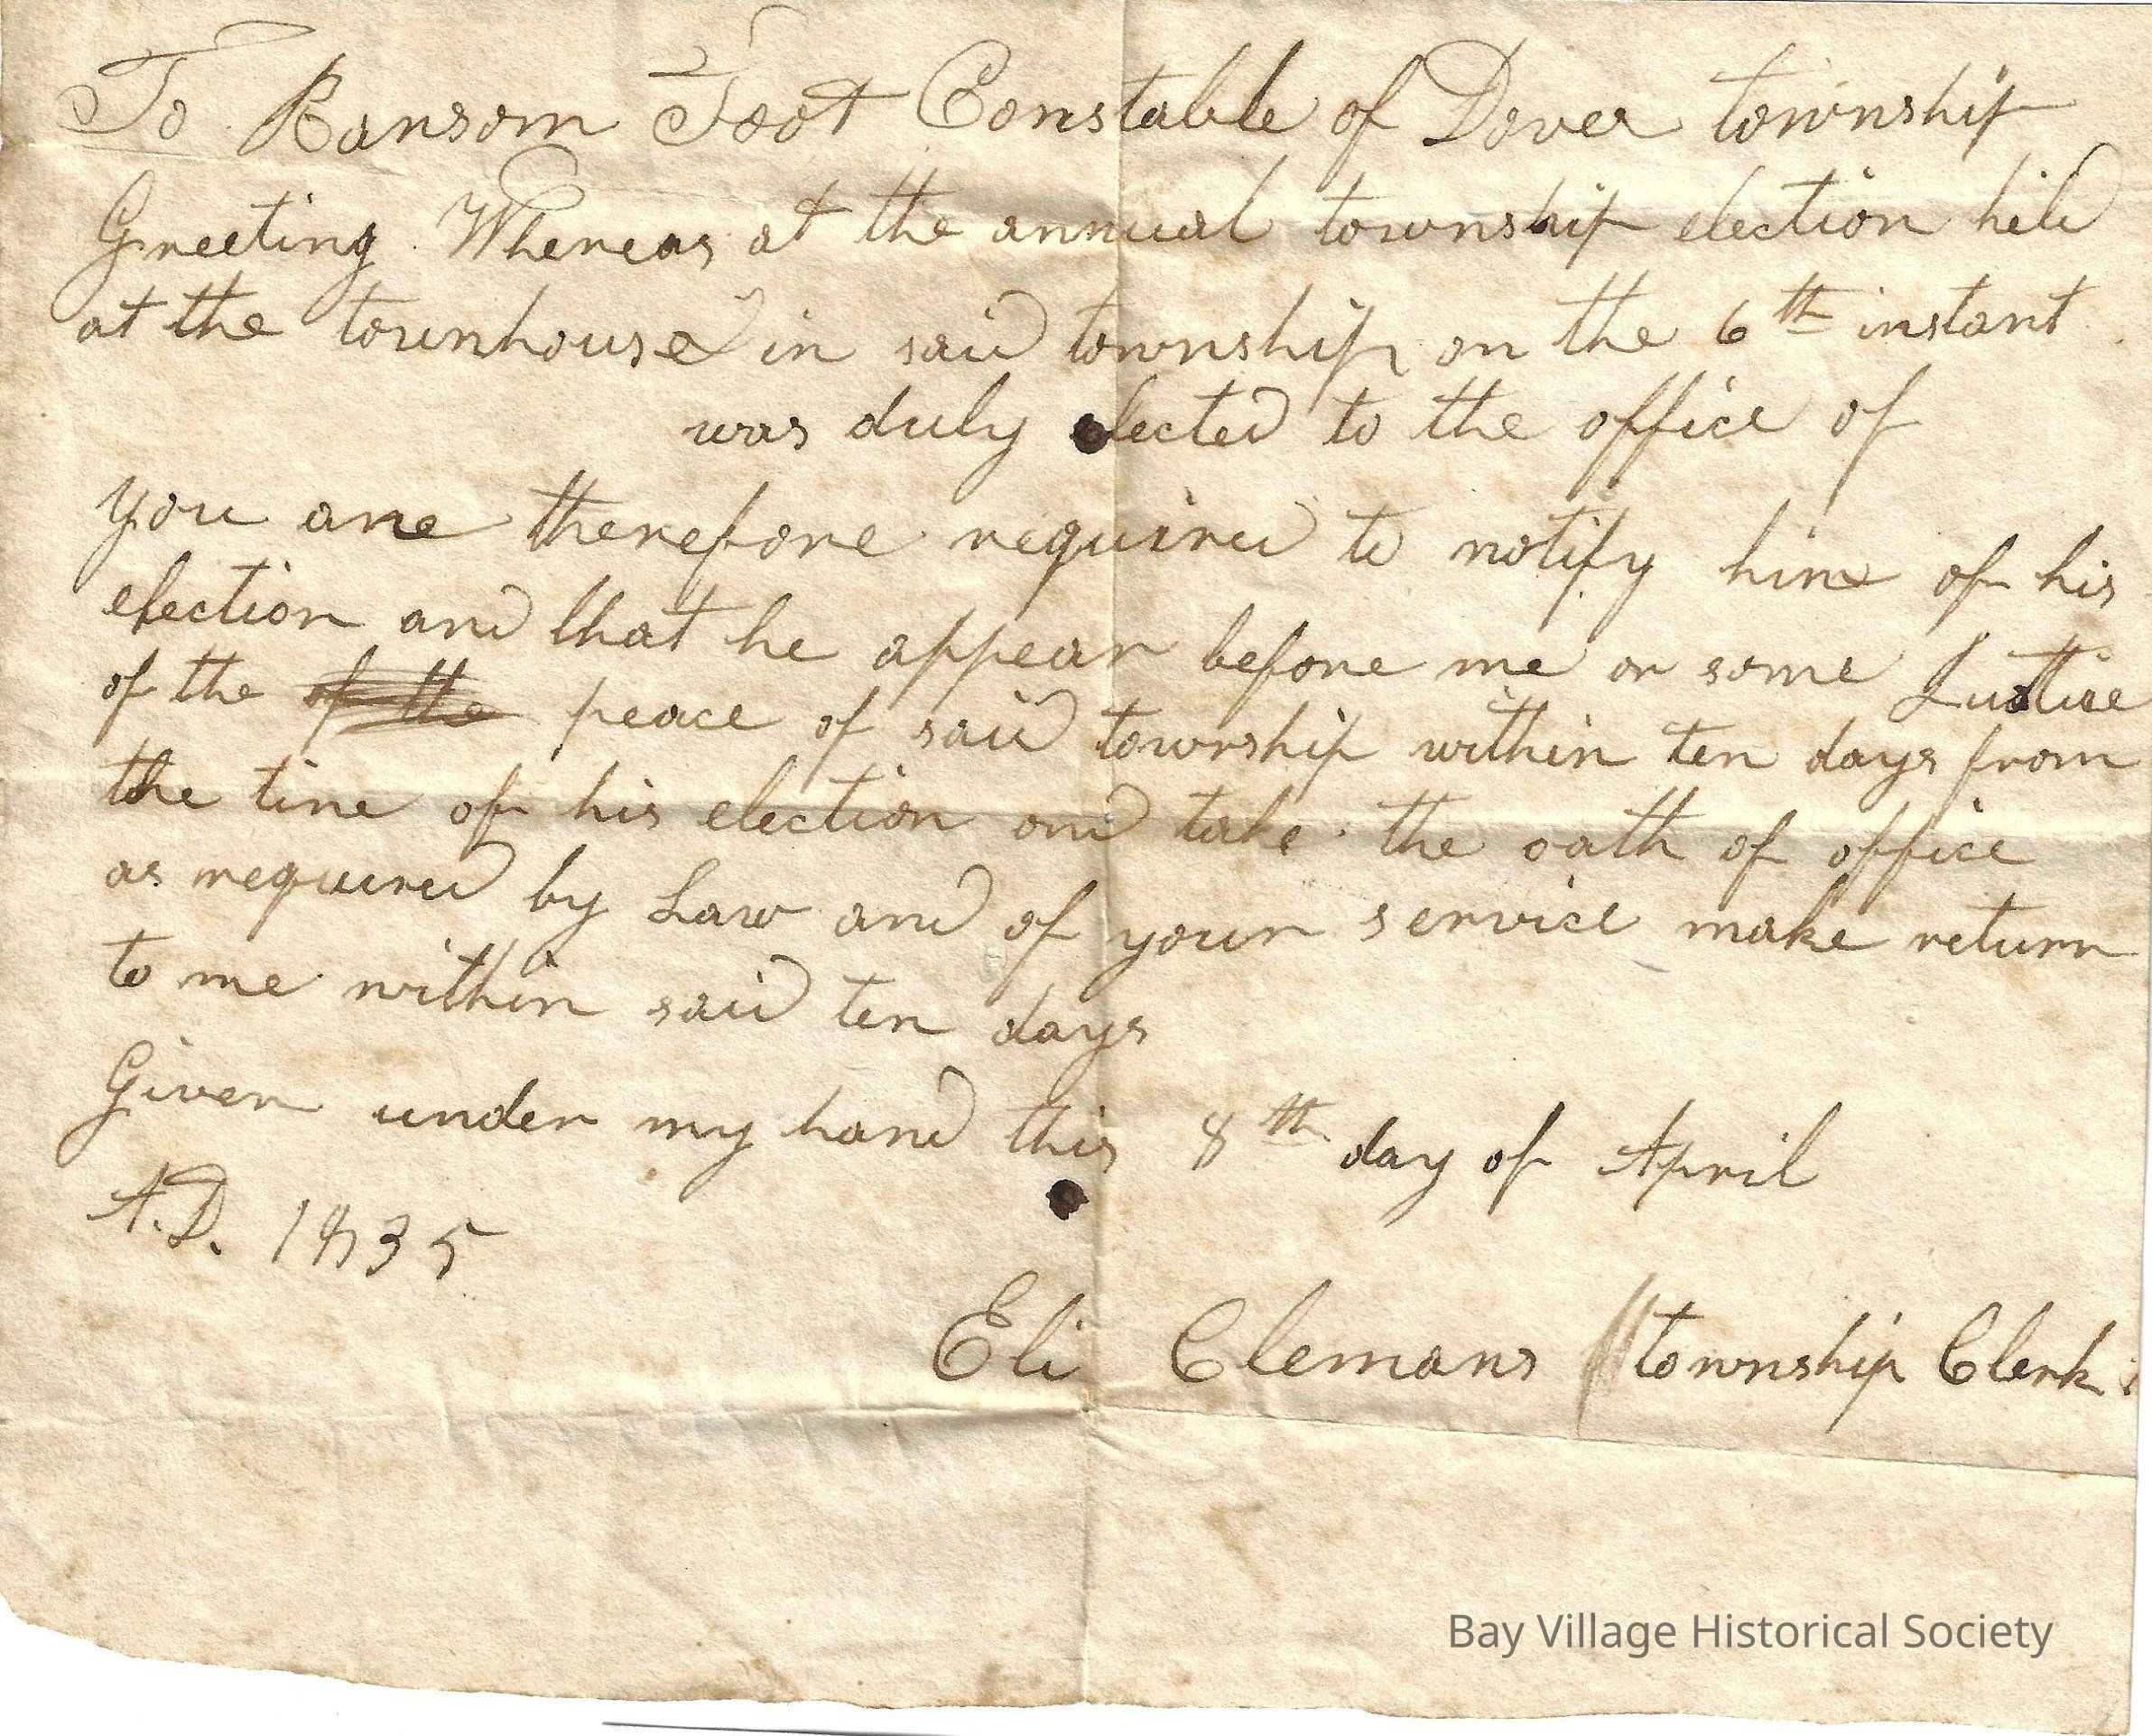 To Ransom Foot Constable of Dover township
Greeting. Whereas at the annual township election held
at the townhouse in said township on the 6th instant
was duly elected to the office of
you are therefore required to notify him of his
election and that he appear before me or some Justice
of the of the peace of said township within ten days from
the time of his election and take the oath of office
as required by Law and of your service make return
to me within said ten days
Given under my hand this 8th day of April
A.D. 1835
Eli Clemans township Clerk
Bay Village Historical Society